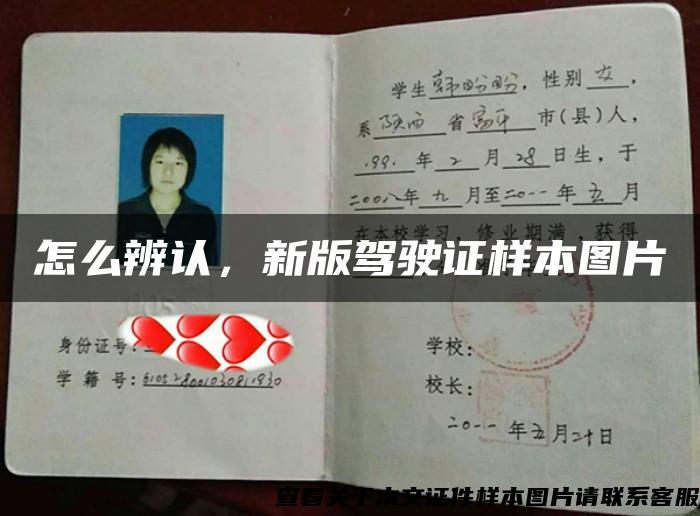 学生韩盼盼，性别女，
系陕西省富平市(县)人，
1991年2月28日生，于
二00八年九月至二0一一年五月
在本校学习，修业期满，获得
怎么辨认，新版驾驶证样本图片
身份证号：
学 籍 号：610528001030811930
学校：
校长：
二0一一年五月二十日
查看关于本文证件样本图片请联系客服